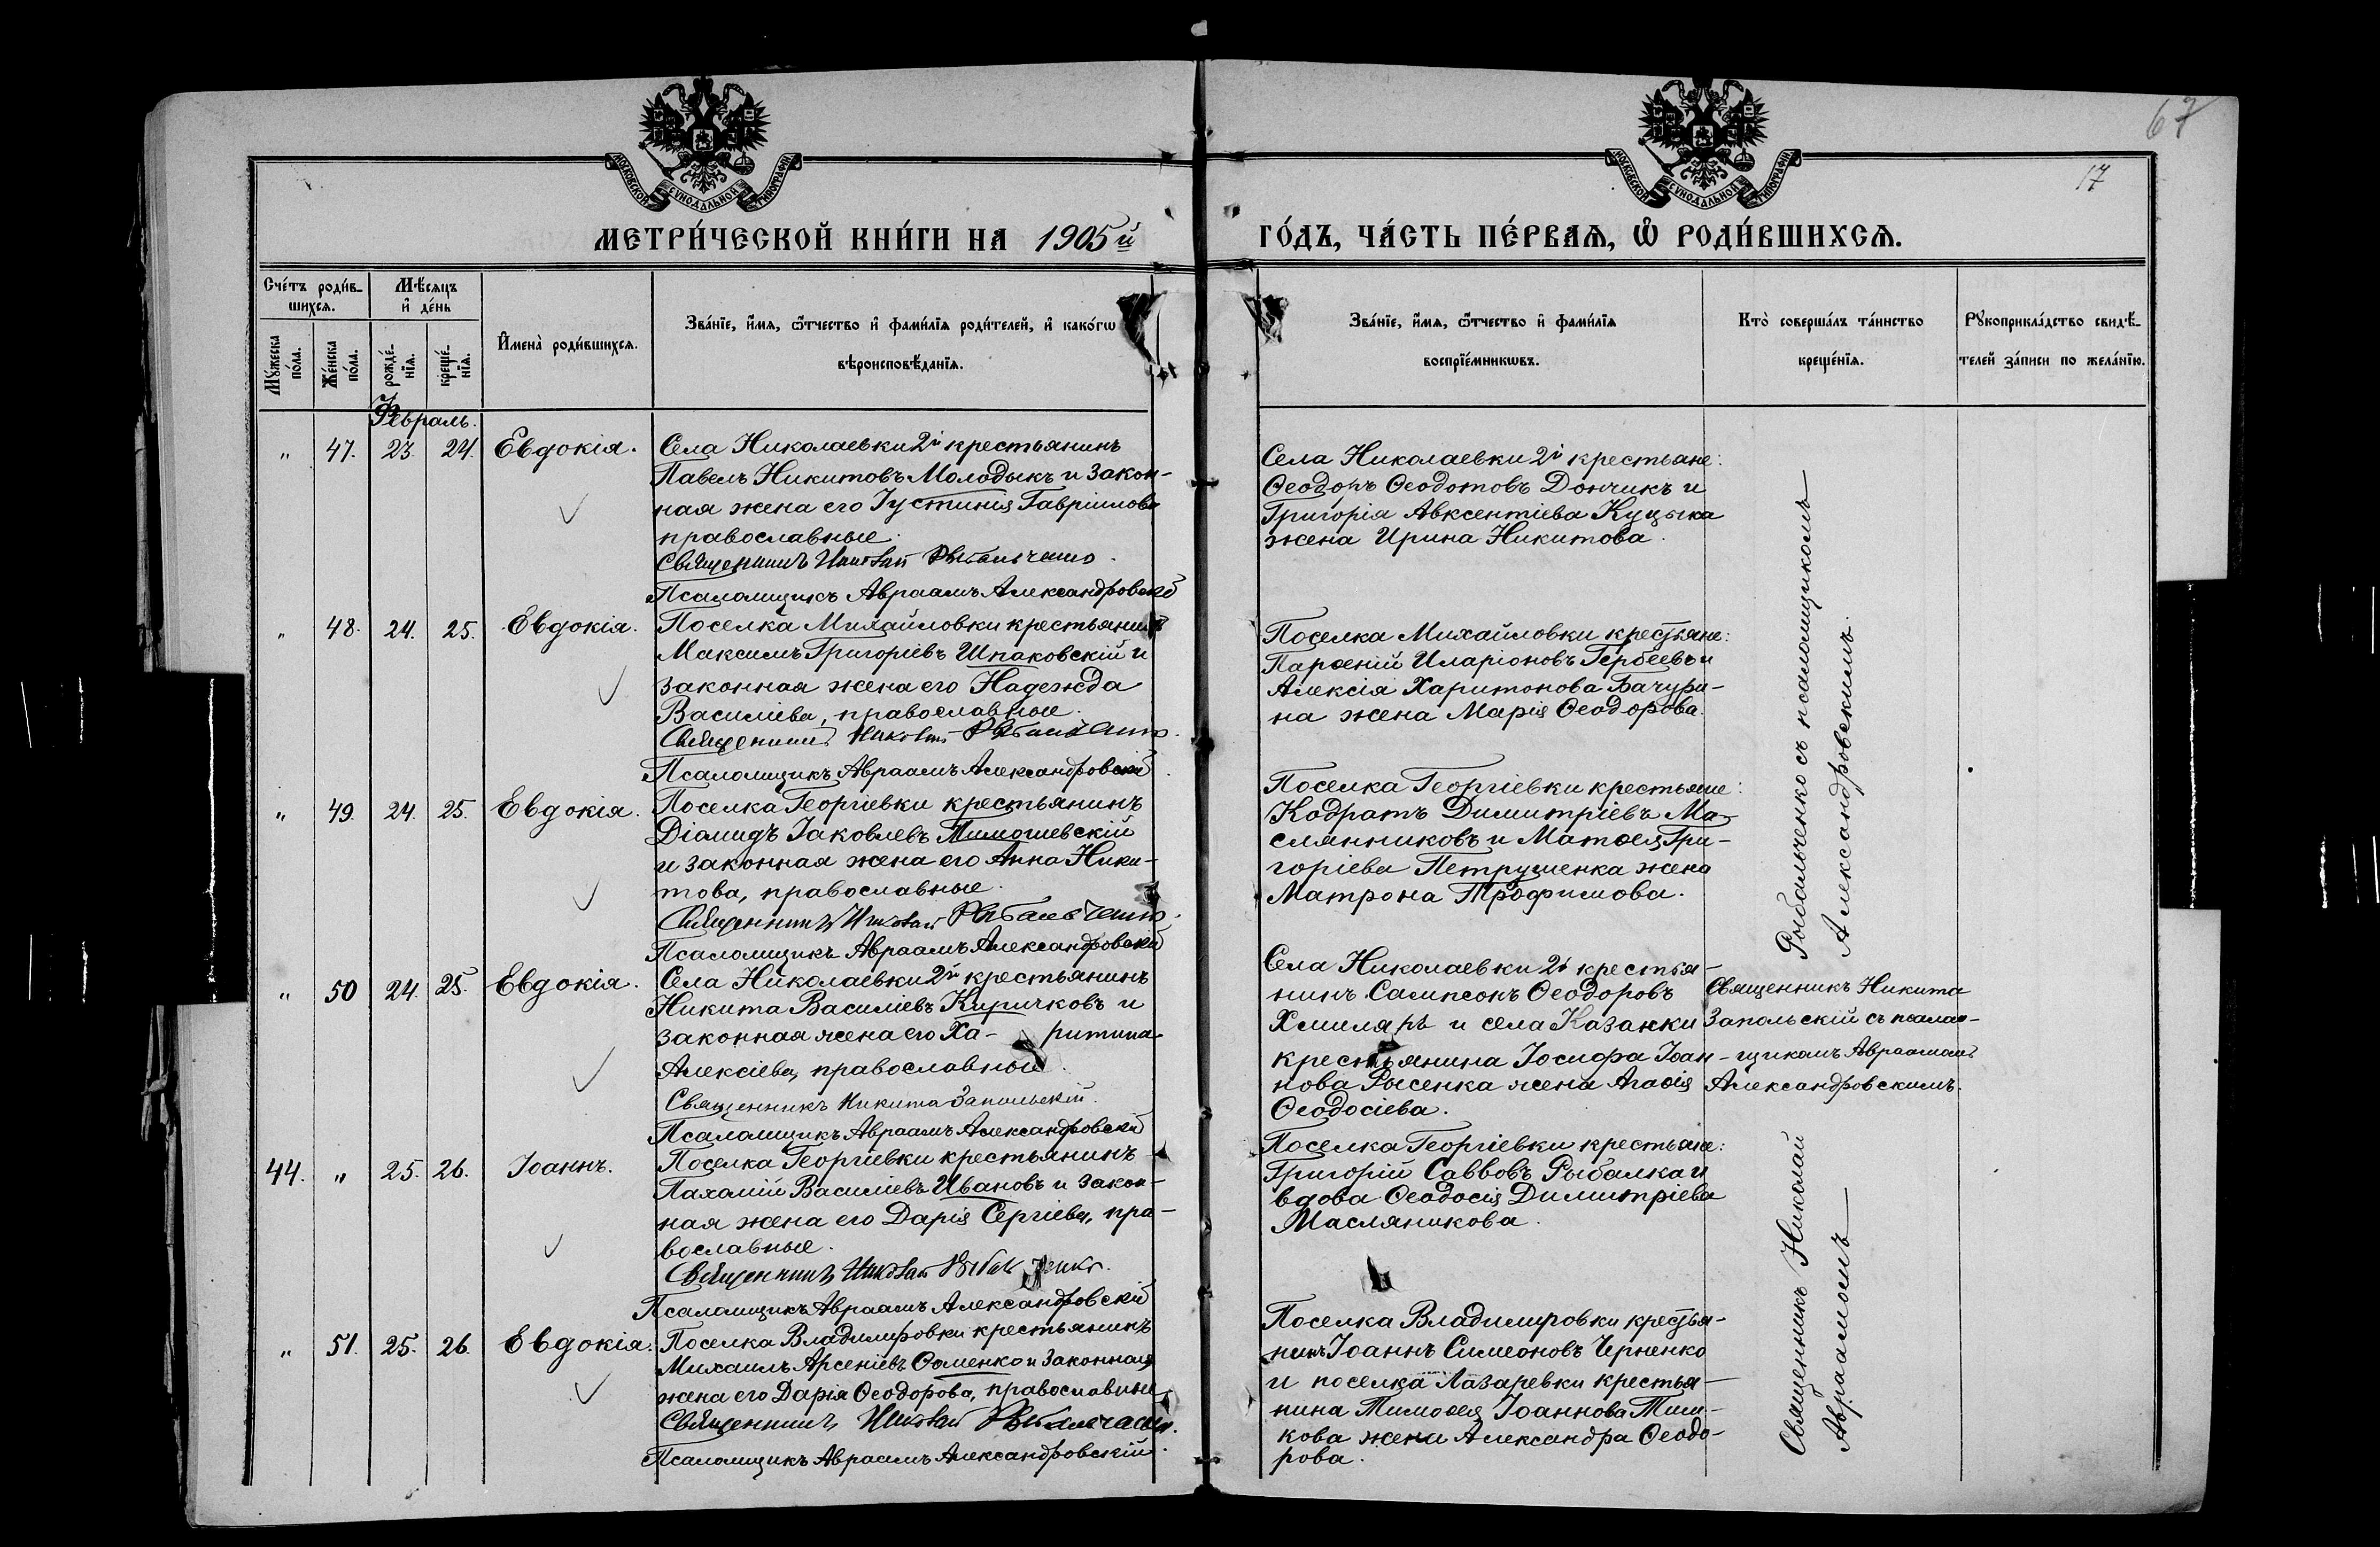 67
17
МОСКОВСКОЙ СУНОДАЛЬНОЙ ТИПОГРАФІИ
МОСКОВСКОЙ СУНОДАЛЬНОЙ ТИПОГРАФІИ
МЕТРИ́ЧЕСКОЙ КНИ́ГИ НА 1905й
ГО́ДЪ, ЧА́СТЬ ПЕ́РВАѦ, Ѡ РОДИ́ВШИХСѦ.
Сче́тъ роди́в-
шихсѧ.
Мѣ́сяцъ
и҆ де́нь
Мꙋ́жеска
по́ла.
Же́нска
по́ла.
рожде́-
нїѧ.
креще́-
нїѧ.
И҆мена̀ роди́вшихсѧ.
Зва́нїе, и҆́мѧ, ѻ҆́тчество и҆ фами́лїѧ роди́телей, и҆ како́гѡ
вѣроисповѣ́данїѧ.
Зва́нїе, и҆́мѧ, ѻ҆́тчество и҆ фами́лїѧ
воспрїе́мникѡвъ.
Кто̀ соверша́лъ та́инство
креще́нїѧ.
Рꙋкоприкла́дство свидѣ́-
телей за́писи по жела́нїю.
Февраль.
" 47. 23. 24. Евдокія.
Села Николаевки 2й крестьянинъ
Павелъ Никитовъ Молодыкъ и закон-
ная жена его Іустинія Гавріилова
православные.
Священникъ Николай Рыбальченко.
Псаломщикъ Авраамъ Александровскій
Села Николаевки 2й крестьяне:
Ѳеодоръ Ѳеодотовъ Дончикъ и
Григорія Авксентіева Куцыка
жена Ирина Никитова.
" 48. 24. 25. Евдокія.
Поселка Михайловки крестьянинъ
Максимъ Григоріевъ Шпаковскій и
законная жена его Надежда
Василіева, православные.
Священникъ Николай Рыбальченко.
Псаломщикъ Авраамъ Александровскій.
Поселка Михайловки крестьяне:
Парѳеній Иларіоновъ Гербеевъ и
Алексія Харитонова Бачури-
на жена Марія Ѳеодорова.
" 49. 24. 25. Евдокія.
Поселка Георгіевки крестьянинъ
Діамидъ Іаковлевъ Тимошевскій
и законная жена его Анна Ники-
това, православные.
Священникъ Николай Рыбальченко.
Псаломщикъ Авраамъ Александровскій
Поселка Георгіевки крестьяне:
Кодратъ Димитріевъ Ма-
слянниковъ и Матѳея Гри-
горіева Петрушенка жена
Матрона Трофимова.
Рыбальченко съ псаломщикомъ
Александровскимъ.
" 50 24. 25. Евдокія.
Села Николаевки 2й крестьянинъ
Никита Василіевъ Киричковъ и
законная жена его Ха- ритина
Алексіева, православные.
Священникъ Никита Запольскій.
Псаломщикъ Авраамъ Александровскій
Села Николаевки 2й крестья-
нинъ Сампсонъ Ѳеодоровъ
Хмиляръ и села Казанки
крестьянина Іосифа Іоан-
нова Рысенка жена Агаѳія
Ѳеодосіева.
Священникъ Никита
Запольскій съ псалом-
щикомъ Авраамомъ
Александровскимъ.
44. " 25. 26. Іоаннъ.
Поселка Георгіевки крестьянинъ
Пахомій Василіевъ Ивановъ и закон-
ная жена его Дарія Сергіева, пра-
вославные.
Священникъ Николай Рыбальченко.
Псаломщикъ Авраамъ Александровскій
Поселка Георгіевки крестьяне:
Григорій Саввовъ Рыбалка и
вдова Ѳеодосія Димитріева
Масляникова.
" 51. 25. 26. Евдокія.
Поселка Владимировки крестьянинъ
Михаилъ Арсеніевъ Ѳоменко и законная
жена его Дарія Ѳеодорова, православные
Священникъ Николай Рыбальченко.
Псаломщикъ Авраамъ Александровскій.
Поселка Владимировки крестья-
нинъ Іоаннъ Симеоновъ Черненко
и поселка Лазаревки крестья-
нина Тимоѳея Іоаннова
жена Александра Ѳеодо-
рова.
Священникъ Николай
Авраамомъ